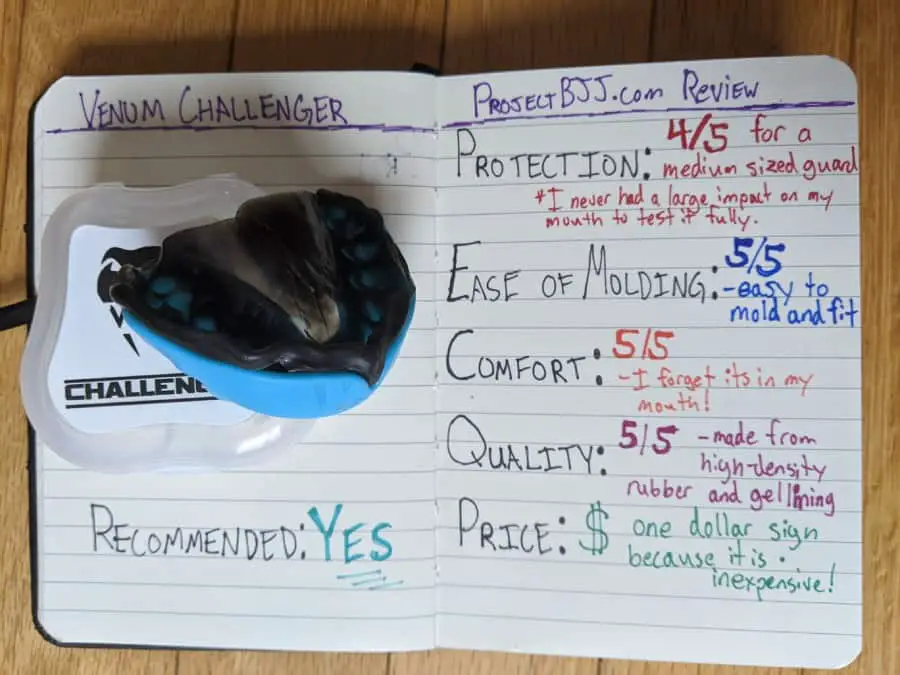 VENUM CHALLENGER
CHALLEN
RECOMMENDED: YES
PROJECTBJJ.COM REVIEW
PROTECTION: 4/5 for a
medium sized guard
*I never had a large impact on my
mouth to test it fully.
EASE OF MOLDING: 5/5
-easy to
mold and fit
COMFORT: 5/5
-I forget its in my
mouth!
QUALITY: 5/5 -made from
high-density
rubber and gel lining
PRICE: $ one dollar sign
because it is
inexpensive!